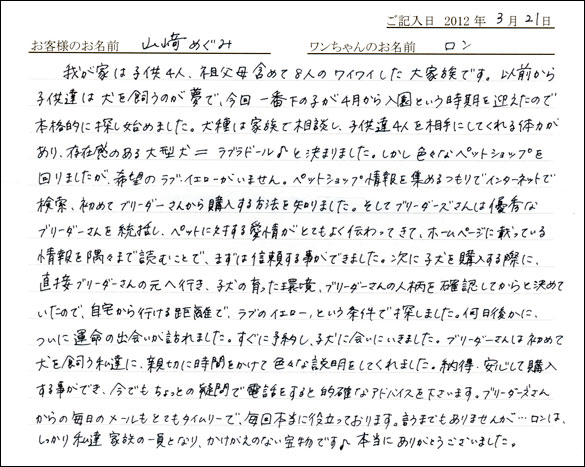 ご記入日 2012年 3月 21日
お客様のお名前 山﨑 めぐみ ワンちゃんのお名前 ロン
我が家は子供4人、祖父母含めて8人のワイワイした大家族です。以前から
子供達は犬を飼うのが夢で、今回一番下の子が4月から入園という時期を迎えたので
本格的に探し始めました。犬種は家族で相談し、子供達4人を相手にしてくれる体力が
あり、存在感のある大型犬=ラブラドール♪と決まりました。しかし色々なペットショップを
回りましたが、希望のラブ・イエローがいません。ペットショップ情報を集めるつもりでインターネットで
検索、初めてブリーダーさんから購入する方法を知りました。そしてブリーダーズさんは優秀な
ブリーダーさんを統括し、ペットに対する愛情がとてもよく伝わってきて、ホームページに載っている
情報を隅々まで読むことで、まずは信頼する事ができました。次に子犬を購入する際に、
直接ブリーダーさんの元へ行き、子犬の育った環境、ブリーダーさんの人柄を確認してからと決めて
いたので、自宅から行ける距離で、ラブのイエロー、という条件で探しました。何日後かに、
ついに運命の出会いが訪れました。すぐに予約し、子犬に会いにいきました。ブリーダーさんは初めて
犬を飼う私達に、親切に時間をかけて色々な説明をしてくれました。納得・安心して購入
する事ができ、今でもちょっとの疑問で電話をすると的確なアドバイスを下さいます。ブリーダーズさん
からの毎日のメールもとてもタイムリーで、毎回本当に役立っております。言うまでもありませんが…ロンは、
しっかり私達家族の一員となり、かけがえのない宝物です♪本当にありがとうございました。